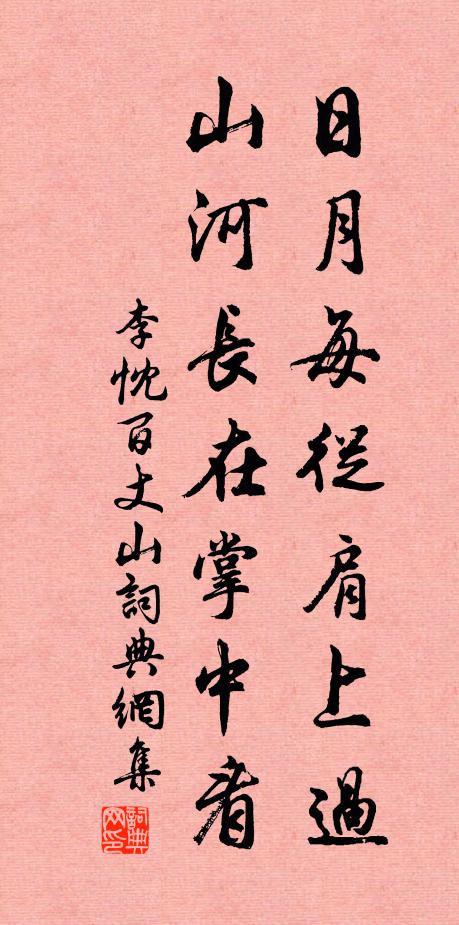 日月每從肩上過
山河長在掌中看
李忱百丈山詞典網集
詞典网印